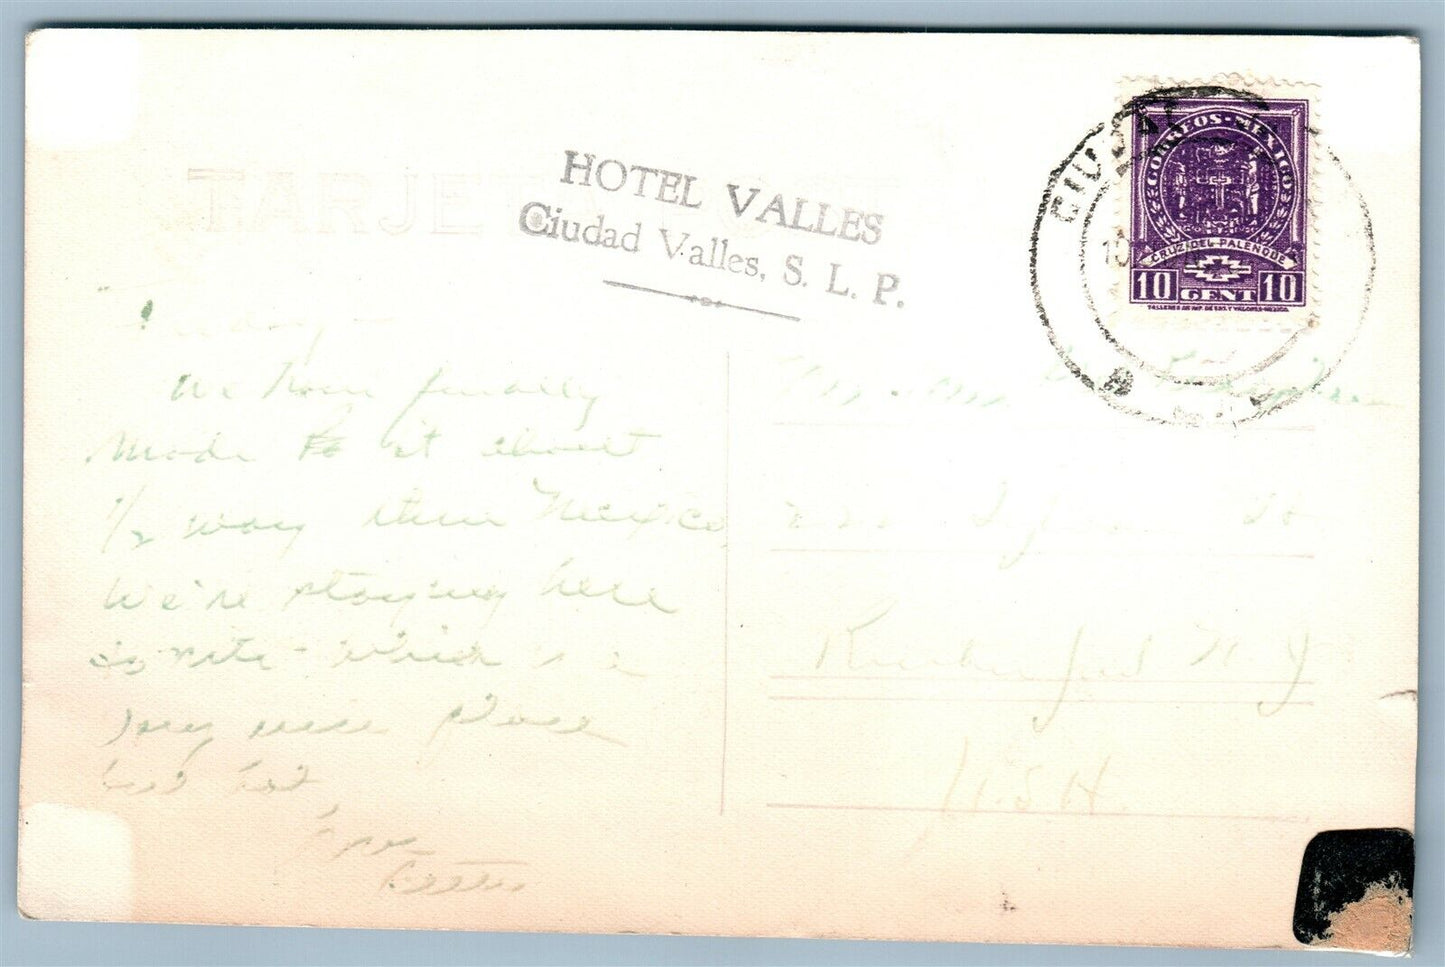 TARJETA
HOTEL VALLES
Ciudad Valles, S. L. P.
CIUDAD
CORREOS-MEXICO
CRUZ DEL PALENQUE
10 CENT 10
TALLERES DE IMP. DE EST. Y VALORES-MEXICO.
We have finally
made it about
1/2 way thru Mexico.
We're staying here
to nite - which is a
very nice place
but hot.
Mr. & Mrs.
Rutherford N. J
U.S.A.